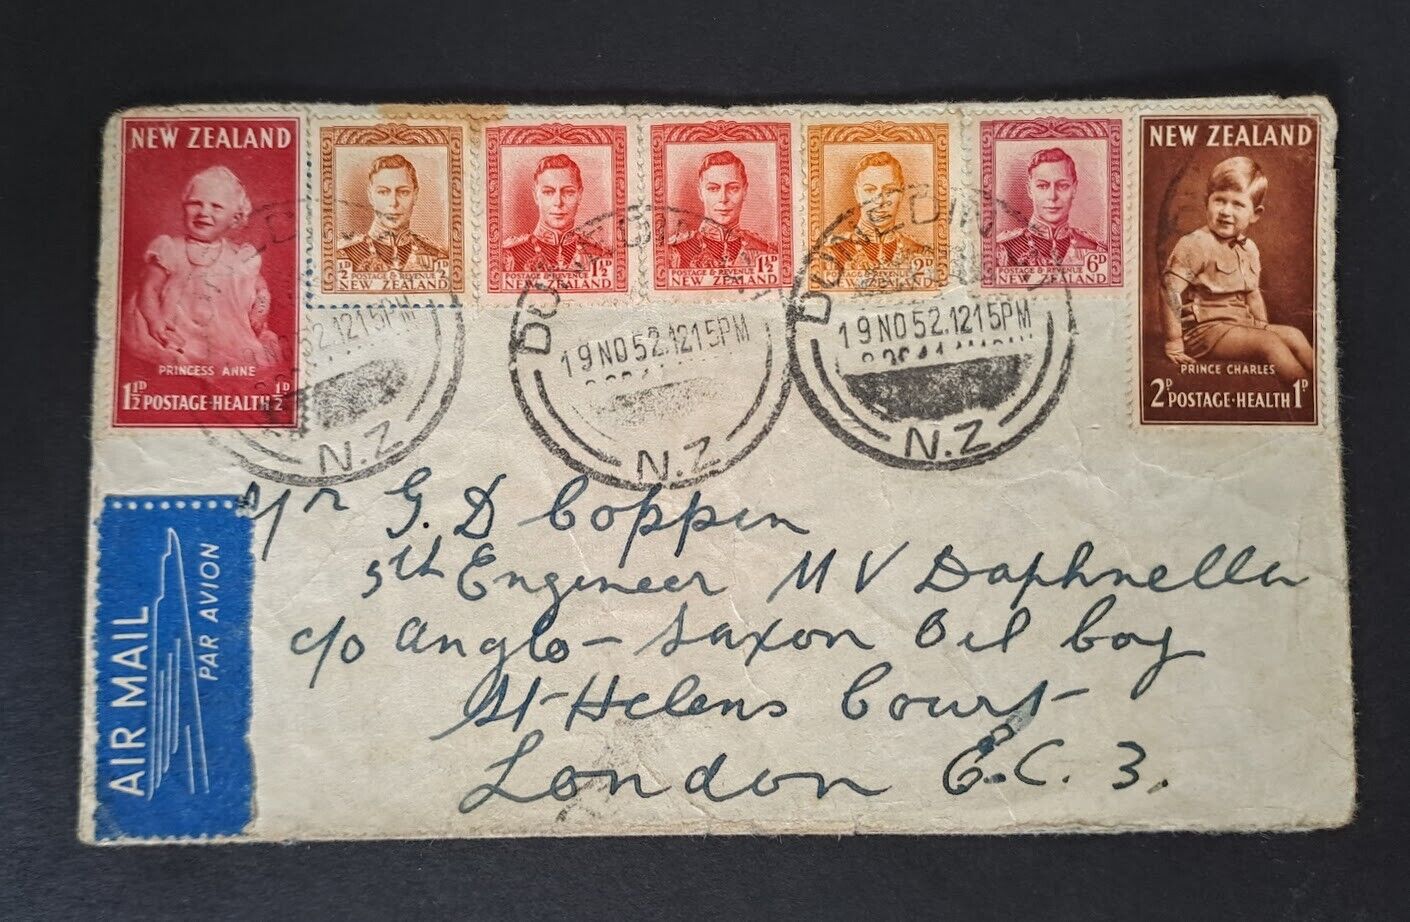 NEW ZEALAND
PRINCESS ANNE
1½D POSTAGE·HEALTH ½D
½D POSTAGE & REVENUE ½D
NEW ZEALAND
POSTAGE & REVENUE 1½D
NEW ZEALAND
POSTAGE & REVENUE 1½D
NEW ZEALAND
POSTAGE & REVENUE 2D
NEW ZEALAND
POSTAGE & REVENUE 6D
NEW ZEALAND
NEW ZEALAND
PRINCE CHARLES
2D POSTAGE·HEALTH 1D
19NO52.1215PM
N.Z
DUNEDIN
19NO52.1215PM
N.Z
DUNEDIN
19NO52.1215PM
N.Z
AIR MAIL
PAR AVION
G. D Coppen
5th Engineer M V Daphnella
c/o Anglo-Saxon Oil Coy
St Helens Court
London E.C. 3.